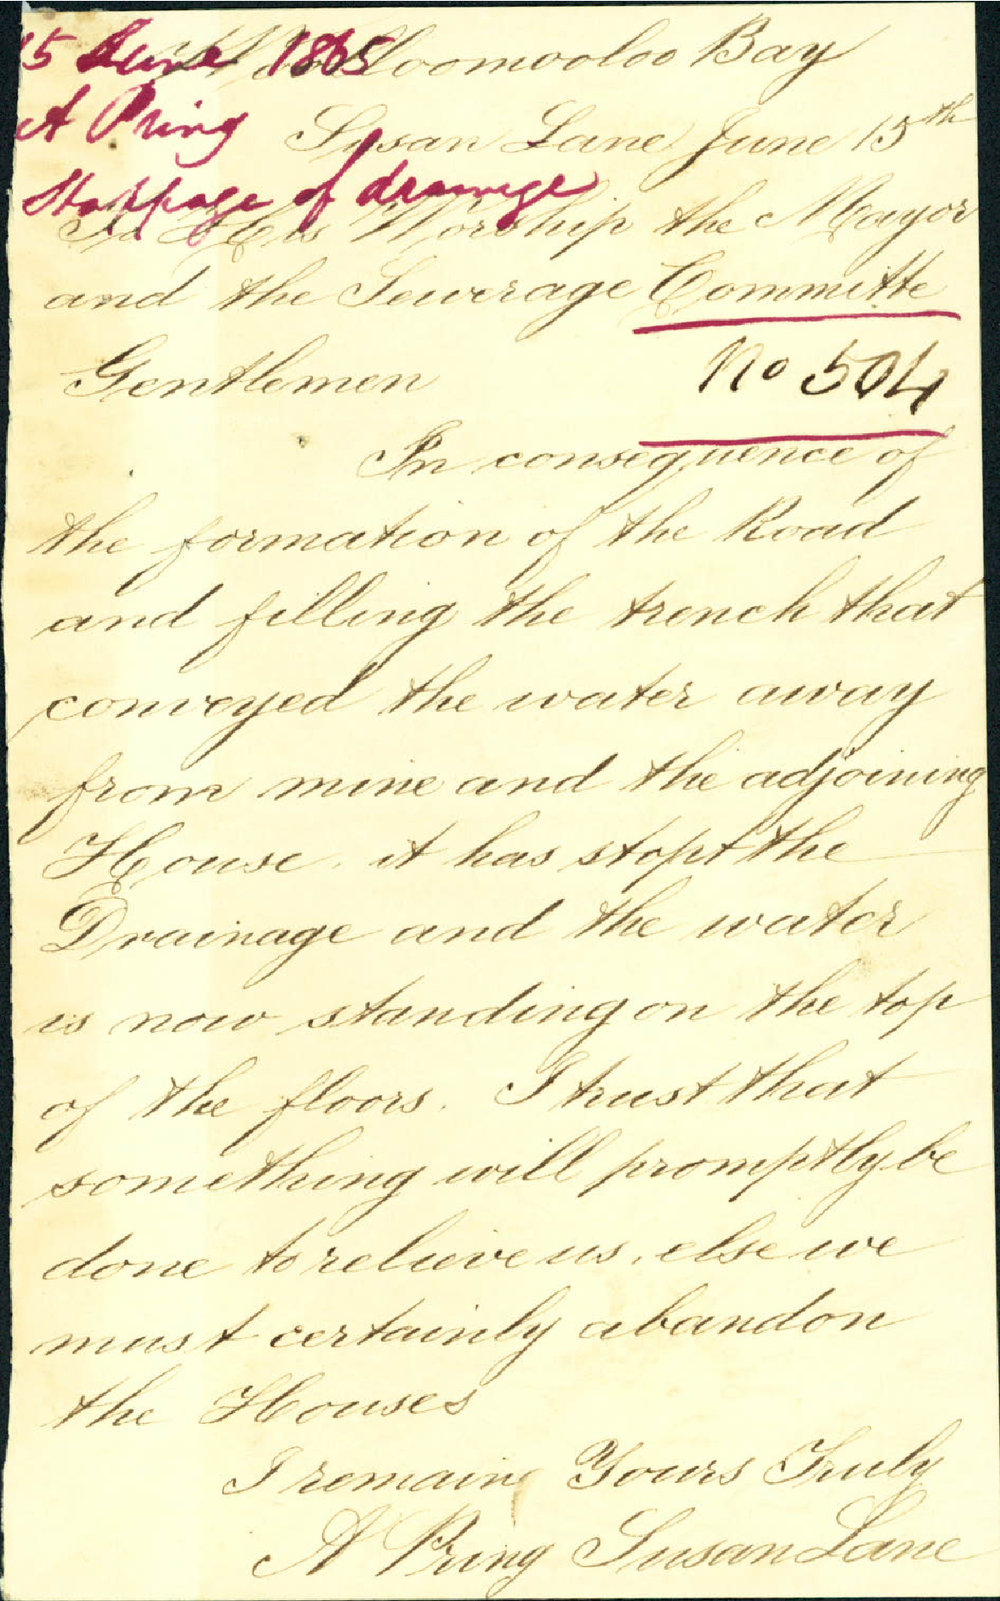 15 June 1865
A Pring
Stoppage of drainage
Woolloomooloo Bay
Susan Lane June 15th
To His Worship the Mayor
and the Sewerage Committe
No 504
Gentlemen
In consequence of
the formation of the Road
and filling the trench that
conveyed the water away
from mine and the adjoining
House. it has stopt the
Drainage and the water
is now standing on the top
of the floors. I trust that
something will promptly be
done to relieve us, else we
must certainly abandon
the Houses
I remain Yours Truly
A Pring Susan Lane